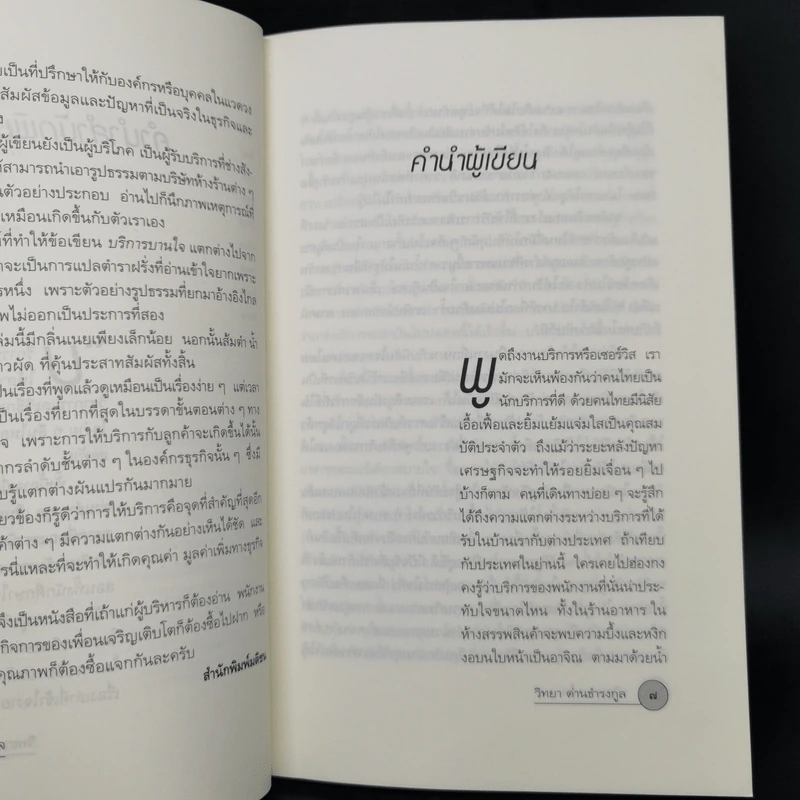 เป็นที่ปรึกษาให้กับองค์กรหรือบุคคลในแวดวง
สัมผัสข้อมูลและปัญหาที่เป็นจริงในธุรกิจและ
ผู้เขียนยังเป็นผู้บริโภค เป็นผู้รับบริการที่ช่างสัง-
สามารถนำเอารูปธรรมตามบริษัทห้างร้านต่าง ๆ
ตัวอย่างประกอบ อ่านไปก็นึกภาพเหตุการณ์ที่
เหมือนเกิดขึ้นกับตัวเราเอง
ที่ทำให้ข้อเขียน บริการบานใจ แตกต่างไปจาก
จะเป็นการแปลตำราฝรั่งที่อ่านเข้าใจยากเพราะ
หนึ่ง เพราะตัวอย่างรูปธรรมที่ยกมาอ้างอิงไกล
ไม่ออกเป็นประการที่สอง
เล่มนี้มีกลิ่นเนยเพียงเล็กน้อย นอกนั้นส้มตำ น้ำ
ผัด ที่คุ้นประสาทสัมผัสทั้งสิ้น
เป็นเรื่องที่พูดแล้วดูเหมือนเป็นเรื่องง่าย ๆ แต่เวลา
เป็นเรื่องที่ยากที่สุดในบรรดาขั้นตอนต่าง ๆ ทาง
เพราะการให้บริการกับลูกค้าจะเกิดขึ้นได้นั้น
ลำดับชั้นต่าง ๆ ในองค์กรธุรกิจนั้น ๆ ซึ่งมี
รู้แตกต่างผันแปรกันมากมาย
ข้องก็รู้ดีว่าการให้บริการคือจุดที่สำคัญที่สุดอีก
ต่าง ๆ มีความแตกต่างกันอย่างเห็นได้ชัด และ
นี่แหละที่จะทำให้เกิดคุณค่า มูลค่าเพิ่มทางธุรกิจ
จึงเป็นหนังสือที่เถ้าแก่ผู้บริหารก็ต้องอ่าน พนักงาน
กิจการของเพื่อนเจริญเติบโตก็ต้องซื้อไปฝาก หรือ
คุณภาพก็ต้องซื้อแจกกันละครับ
สำนักพิมพ์มติชน
คำนำผู้เขียน
พูดถึงงานบริการหรือเซอร์วิส เรา
มักจะเห็นพ้องกันว่าคนไทยเป็น
นักบริการที่ดี ด้วยคนไทยมีนิสัย
เอื้อเฟื้อและยิ้มแย้มแจ่มใสเป็นคุณสม
บัติประจำตัว ถึงแม้ว่าระยะหลังปัญหา
เศรษฐกิจจะทำให้รอยยิ้มเจื่อน ๆ ไป
บ้างก็ตาม คนที่เดินทางบ่อย ๆ จะรู้สึก
ได้ถึงความแตกต่างระหว่างบริการที่ได้
รับในบ้านเรากับต่างประเทศ ถ้าเทียบ
กับประเทศในย่านนี้ ใครเคยไปฮ่องกง
คงรู้ว่าบริการของพนักงานที่นั่นน่าประ-
ทับใจขนาดไหน ทั้งในร้านอาหาร ใน
ห้างสรรพสินค้าจะพบความบึ้งและหงิก
งอบนใบหน้าเป็นอาจิณ ตามมาด้วยน้ำ
วิทยา ด่านธำรงกูล
๗